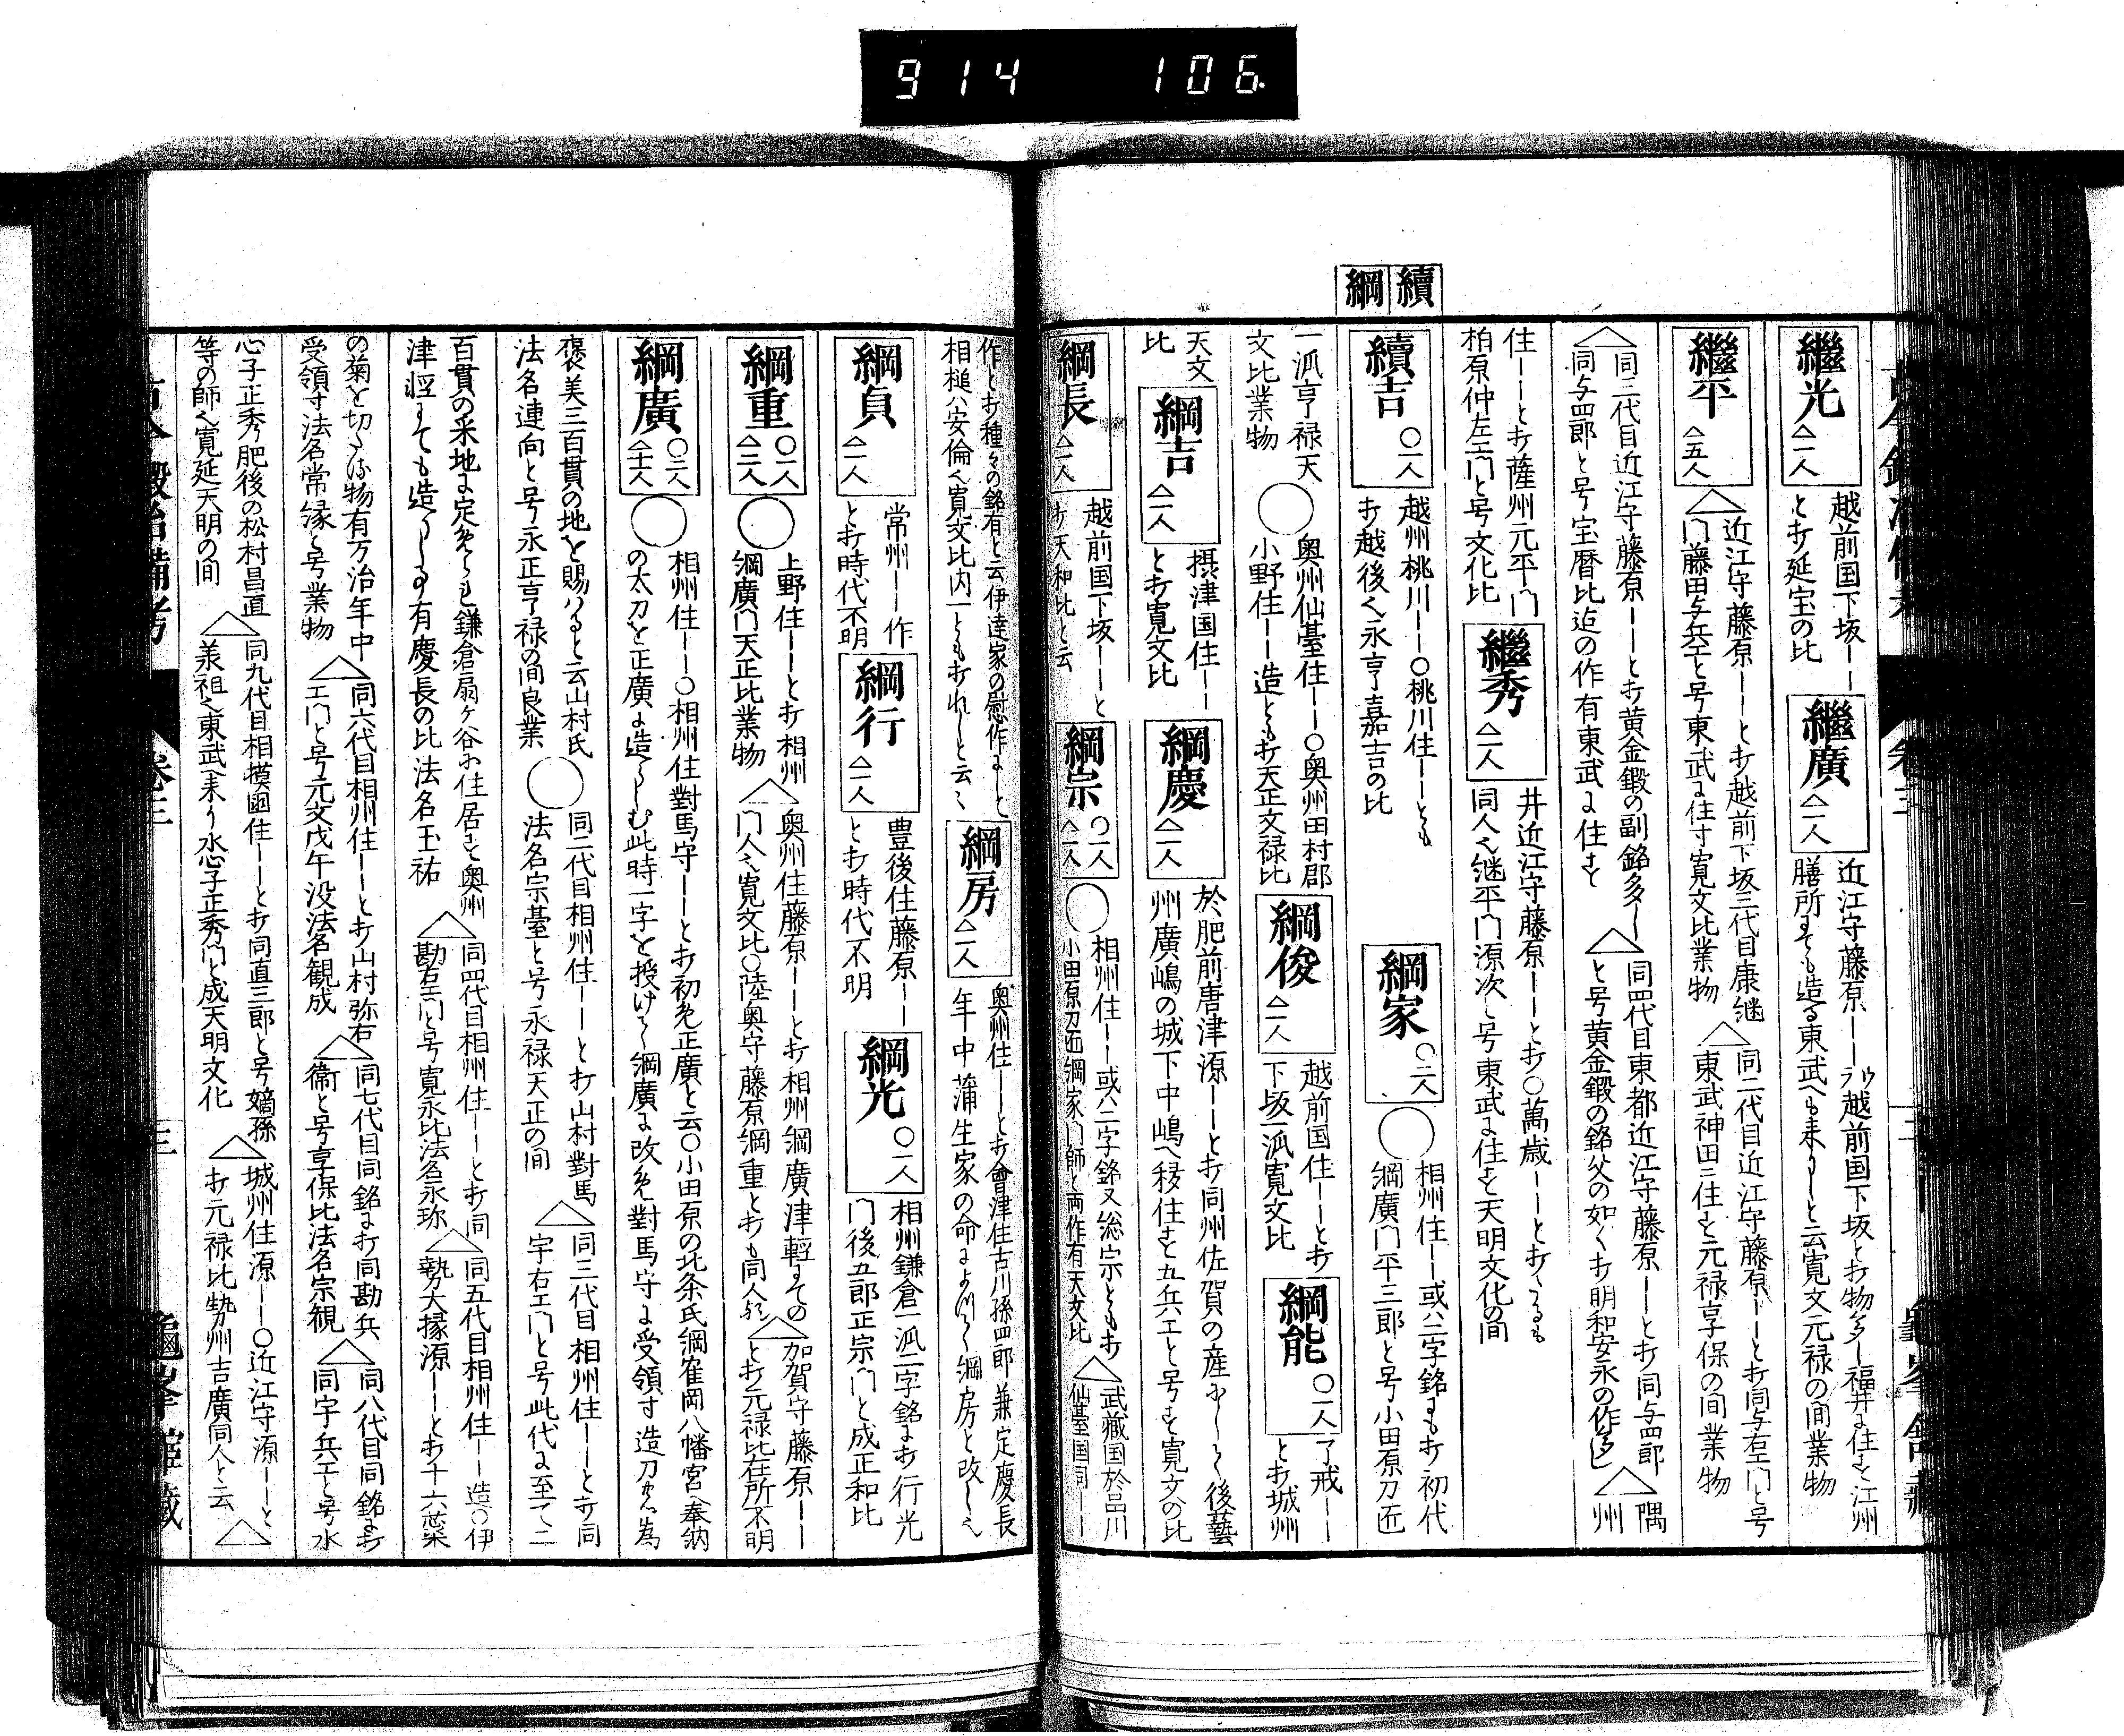 914 106
續
綱
繼光
△一人
越前国下坂ーー
とオ延宝の比
繼廣
△一人
近江守藤原ーー越前国下坂とオ物多し福井に住す江州
膳所にても造る東武へも来りしと云寛文元禄の間業物
繼平
△五人
△近江守藤原ーーとオ越前下坂三代目康継
門藤田与兵エと号東武に住す寛文比業物
△同二代目近江守藤原ーーとオ同与右エ門と号
東武神田三住す元禄享保の間業物
△同三代目近江守藤原ーーとオ黄金鍛の副銘多し
同与四郎と号宝暦比迠の作有東武に住す
△同四代目東都近江守藤原ーーとオ同与四郎
と号黄金鍛の銘父の如くオ明和安永の作多し
△隅州
住ーーとオ薩州元平門
柏原仲左エ門と号文化比
繼秀
△一人
井近江守藤原ーーとオ〇萬歳ーーとオ
同人也継平門源次と号東武に住す天明文化の間
續吉
〇一人
越州桃川ーー〇桃川住ーーとも
オ越後也永亨嘉吉の比
綱家
〇二人
◯相州住ーー或ハ二字銘にもオ初代
綱廣門平三郎と号小田原刀匠
一派亨禄天
文比業物
◯奥州仙臺住ーー〇奥州田村郡
小野住ーー造ともオ天正文禄比
綱俊
△一人
越前国住ーーとオ
下坂一派寛文比
綱能
〇一人
了戒ーー
とオ城州
天文
比
綱吉
△一人
摂津国住ーー
とオ寛文比
綱慶
△一人
於肥前唐津源ーーとオ同州佐賀の産
後藝
州廣嶋の城下中嶋へ移住す五兵エと号す寛文の比
綱長
△一人
越前国下坂ーーと
オ天和比と云
綱宗
〇一人
△一人
◯相州住ーー或ハ二字銘又総宗ともオ
小田原刀匠綱家門師と両作有天文比
△武藏国於品川
仙臺国司ーー
作とオ種々の銘有と云伊達家の慰作
相槌ハ安倫也寛文比
綱房
△一人
奥州住ーーとオ會津住古川孫四郎兼定慶長
年中蒲生家の命により綱房と改しと
綱貞
△一人
常州ーー作
とオ時代不明
綱行
△一人
豊後住藤原ーー
とオ時代不明
綱光
〇一人
相州鎌倉一派二字銘にオ行光
門後五郎正宗門と成正和比
綱重
〇一人
△三人
◯上野住ーーとオ相州
綱廣門天正比業物
△奥州住藤原ーーとオ相州綱廣津輕
門人也寛文比〇陸奥守藤原綱重とオも同人
△加賀守藤原ーー
とオ元禄比在所不明
綱廣
〇三人
△十人
◯相州住ーー〇相州住對馬守ーーとオ初め正廣と云〇小田原の北条氏綱寉岡八幡宮奉納
の太刀を正廣に造らしむ此時一字を授けて綱廣に改め對馬守に受領す造刀
褒美三百貫の地を賜はると云山村氏
法名連向と号永正亨禄の間良業
◯同二代目相州住ーーとオ山村對馬
法名宗臺と号永禄天正の間
△同三代目相州住ーーとオ同
宇右エ門と号此代に至て二
百貫の采地に定めらる鎌倉扇ヶ谷に住居す奥州
津輕にても造りし事有慶長の比法名玉祐
△同四代目相州住ーーとオ同
勘右エ門と号寛永比法名永珎
△同五代目相州住ーー造〇伊
勢大掾源ーーとオ十六葉
の菊を切たる物有万治年中
受領す法名常縁と号業物
△同六代目相州住ーーとオ山村弥右
エ門と号元文戊午没法名観成
△同七代目同銘にオ同勘兵
衞と号享保比法名宗観
△同八代目同銘にオ
同宇兵エと号水
心子正秀肥後の松村昌直
等の師也寛延天明の間
△同九代目相模國住ーーとオ同直三郎と号嫡孫
義祖也東武へ来り水心子正秀門と成天明文化
△城州住源ーー〇近江守源ーーと
オ元禄比勢州吉廣同人と云
△
古今鍛冶備考
卷三
三
龜峯館藏